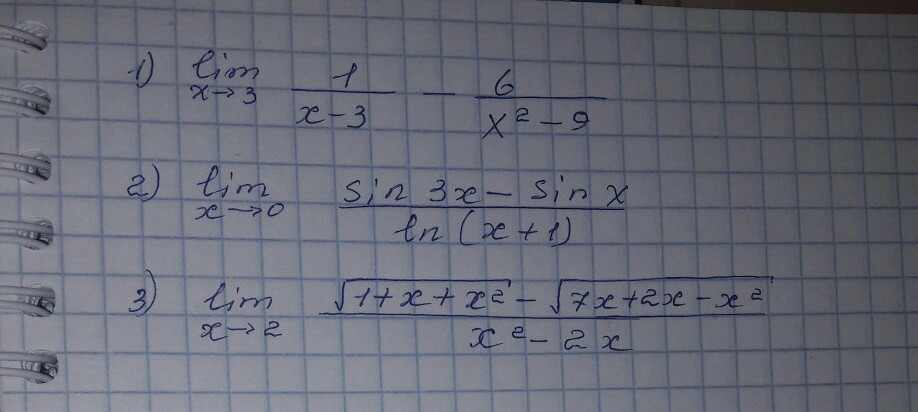 1) lim x→3 1/(x-3) - 6/(x²-9)
2) lim x→0 (sin 3x - sin x)/(ln(x+1))
3) lim x→2 (√(1+x+x²) - √(7x+2x-x²))/(x²-2x)